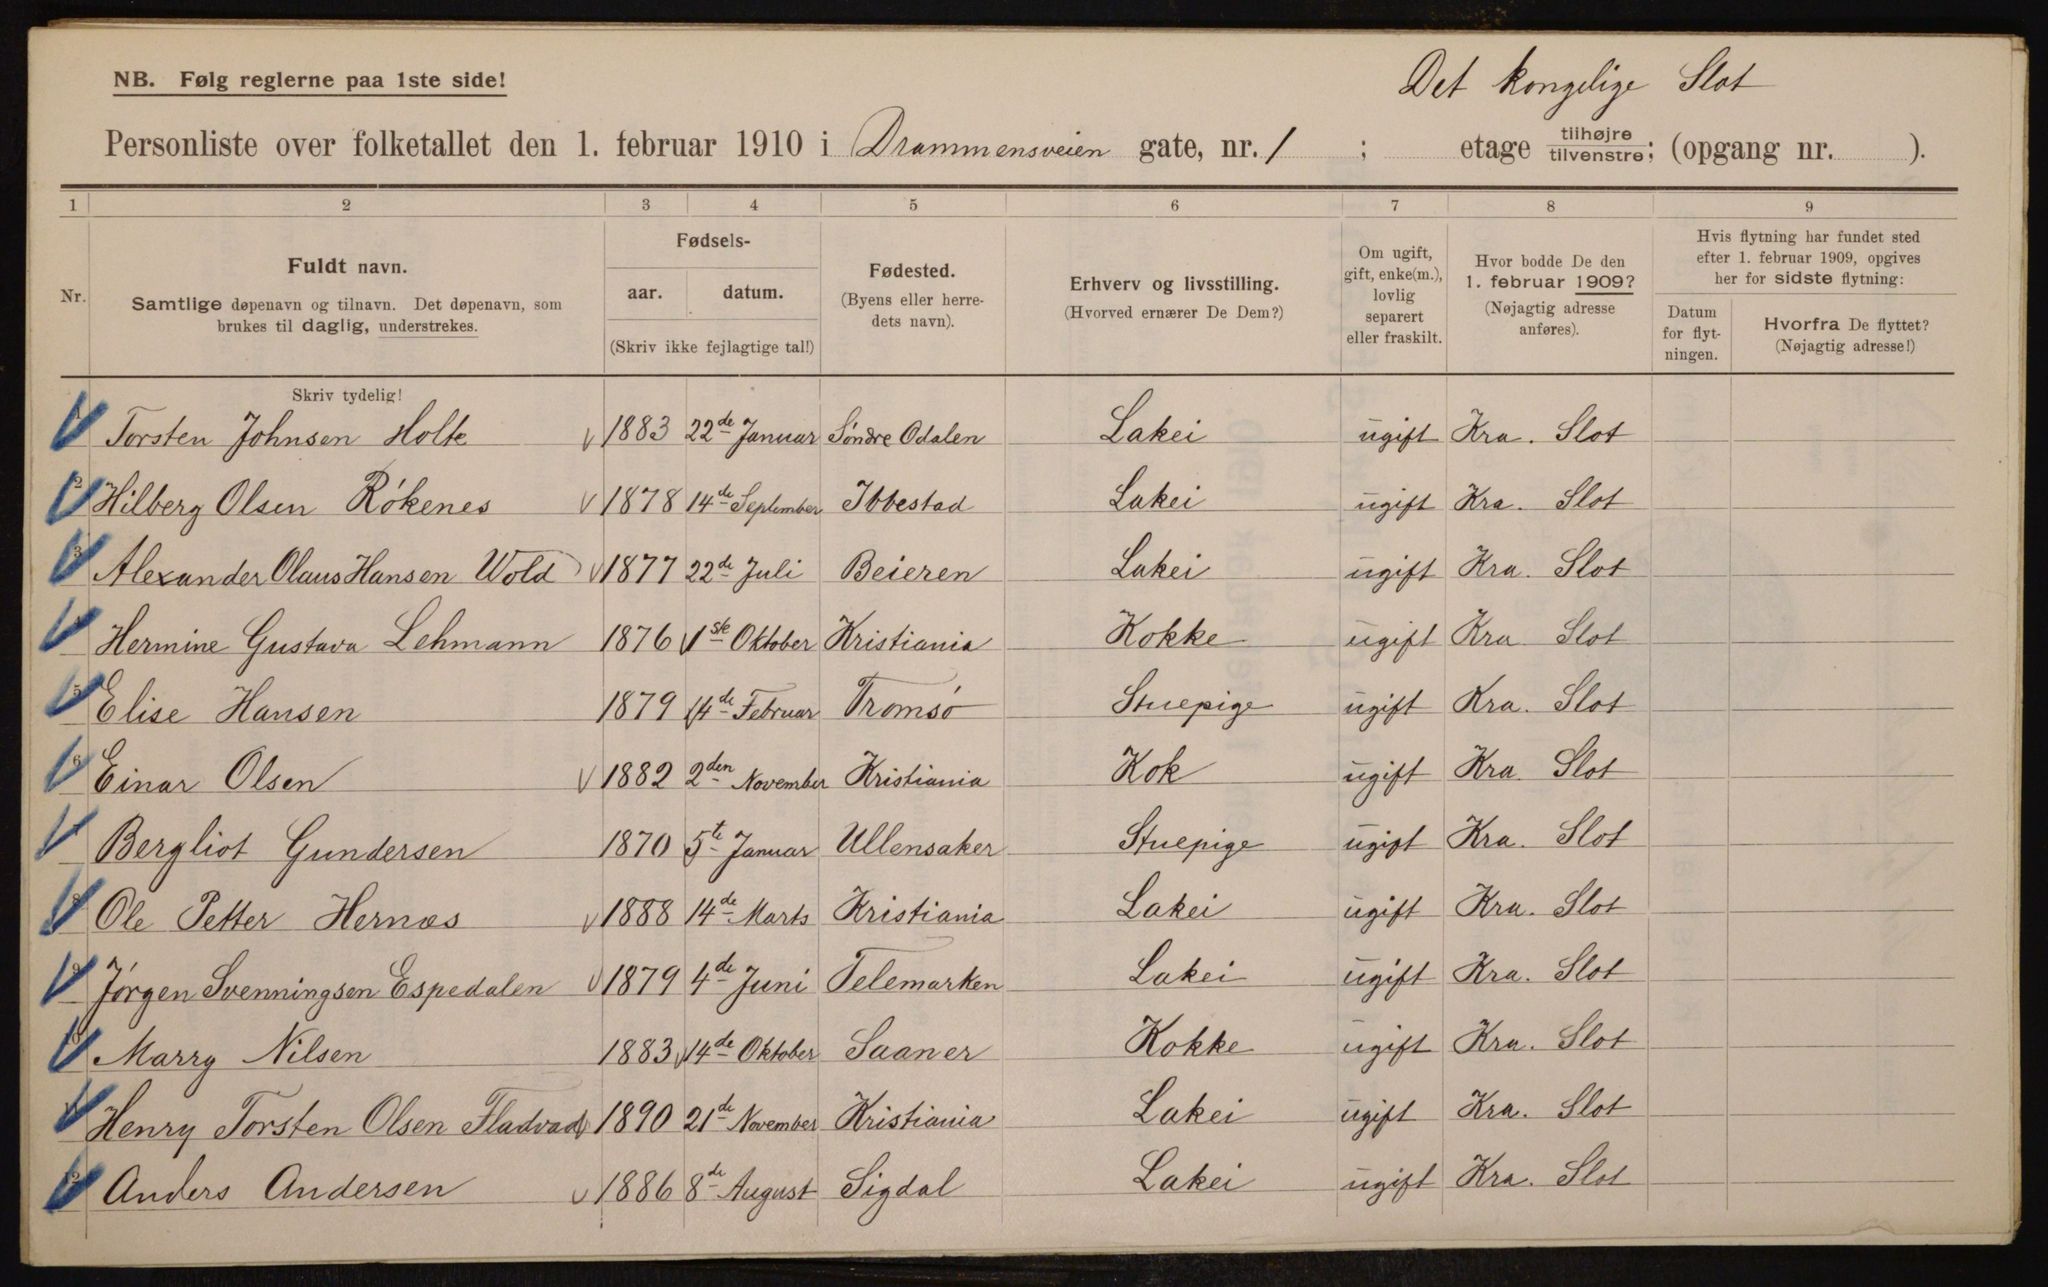 NB. Følg reglerne paa 1ste side!
Det kongelige Slot
Personliste over folketallet den 1. februar 1910 i Drammensveien gate, nr. 1 ; etage tilhøjre tilvenstre; (opgang nr. ).
1 2 3 4 5 6 7 8 9
Nr.
Fuldt navn.
Samtlige døpenavn og tilnavn. Det døpenavn, som
brukes til daglig, understrekes.
Fødsels-
aar. datum.
(Skriv ikke fejlagtige tal!)
Fødested.
(Byens eller herre-
dets navn).
Erhverv og livsstilling.
(Hvorved ernærer De Dem?)
Om ugift,
gift, enke(m.),
lovlig
separert
eller fraskilt.
Hvor bodde De den
1. februar 1909?
(Nøjagtig adresse
anføres).
Hvis flytning har fundet sted
efter 1. februar 1909, opgives
her for sidste flytning:
Datum
for flyt-
ningen.
Hvorfra De flyttet?
(Nøjagtig adresse!)
Skriv tydelig!
1 Torsten Johnsen Holte 1883 22de Januar Søndre Odalen Lakei ugift Kra. Slot
2 Hilberg Olsen Rökenes 1878 14de September Ibbestad Lakei ugift Kra. Slot
3 Alexander Olaus Hansen Wold 1877 22de Juli Beieren Lakei ugift Kra. Slot
Hermine Gustava Lehmann 1876 1ste Oktober Kristiania Kokke ugift Kra Slot
5 Elise Hansen 1879 14de Februar Tromsö Stuepige ugift Kra. Slot
6 Einar Olsen 1882 2den November Kristiania Kok ugift Kra. Slot
7 Bergliot Gundersen 1870 5te Januar Ullensaker Stuepige ugift Kra. Slot
8 Ole Petter Hernæs 1888 14de Marts Kristiania Lakei ugift Kra. Slot
9 Jørgen Svenningsen Espedalen 1879 4de Juni Telemarken Lakei ugift Kra. Slot
Marry Nilsen 1883 14de Oktober Saaner Kokke ugift Kra. Slot
Henry Torsten Olsen Fladvad 1890 21de November Kristiania Lakei ugift Kra. Slot
12 Anders Andersen 1886 8de August Sigdal Lakei ugift Kra. Slot